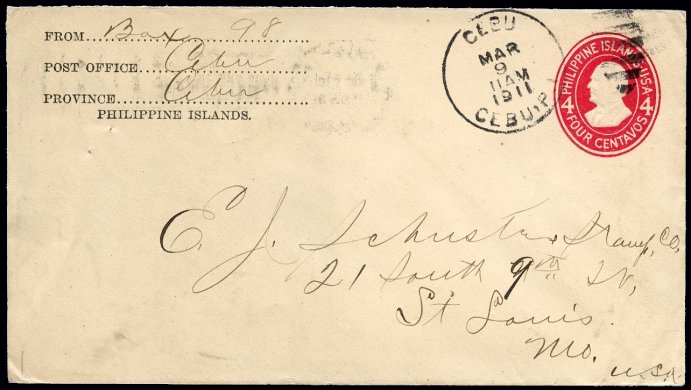 FROM Box 98
POST OFFICE Cebu
PROVINCE Cebu
PHILIPPINE ISLANDS.
CEBU
MAR
9
11AM
1911
CEBU, P.I.
PHILIPPINE ISLANDS. USA
4 4
FOUR CENTAVOS
E. J. Schuster Stamp Co,
21 South 9th St,
St Louis.
Mo.
USA